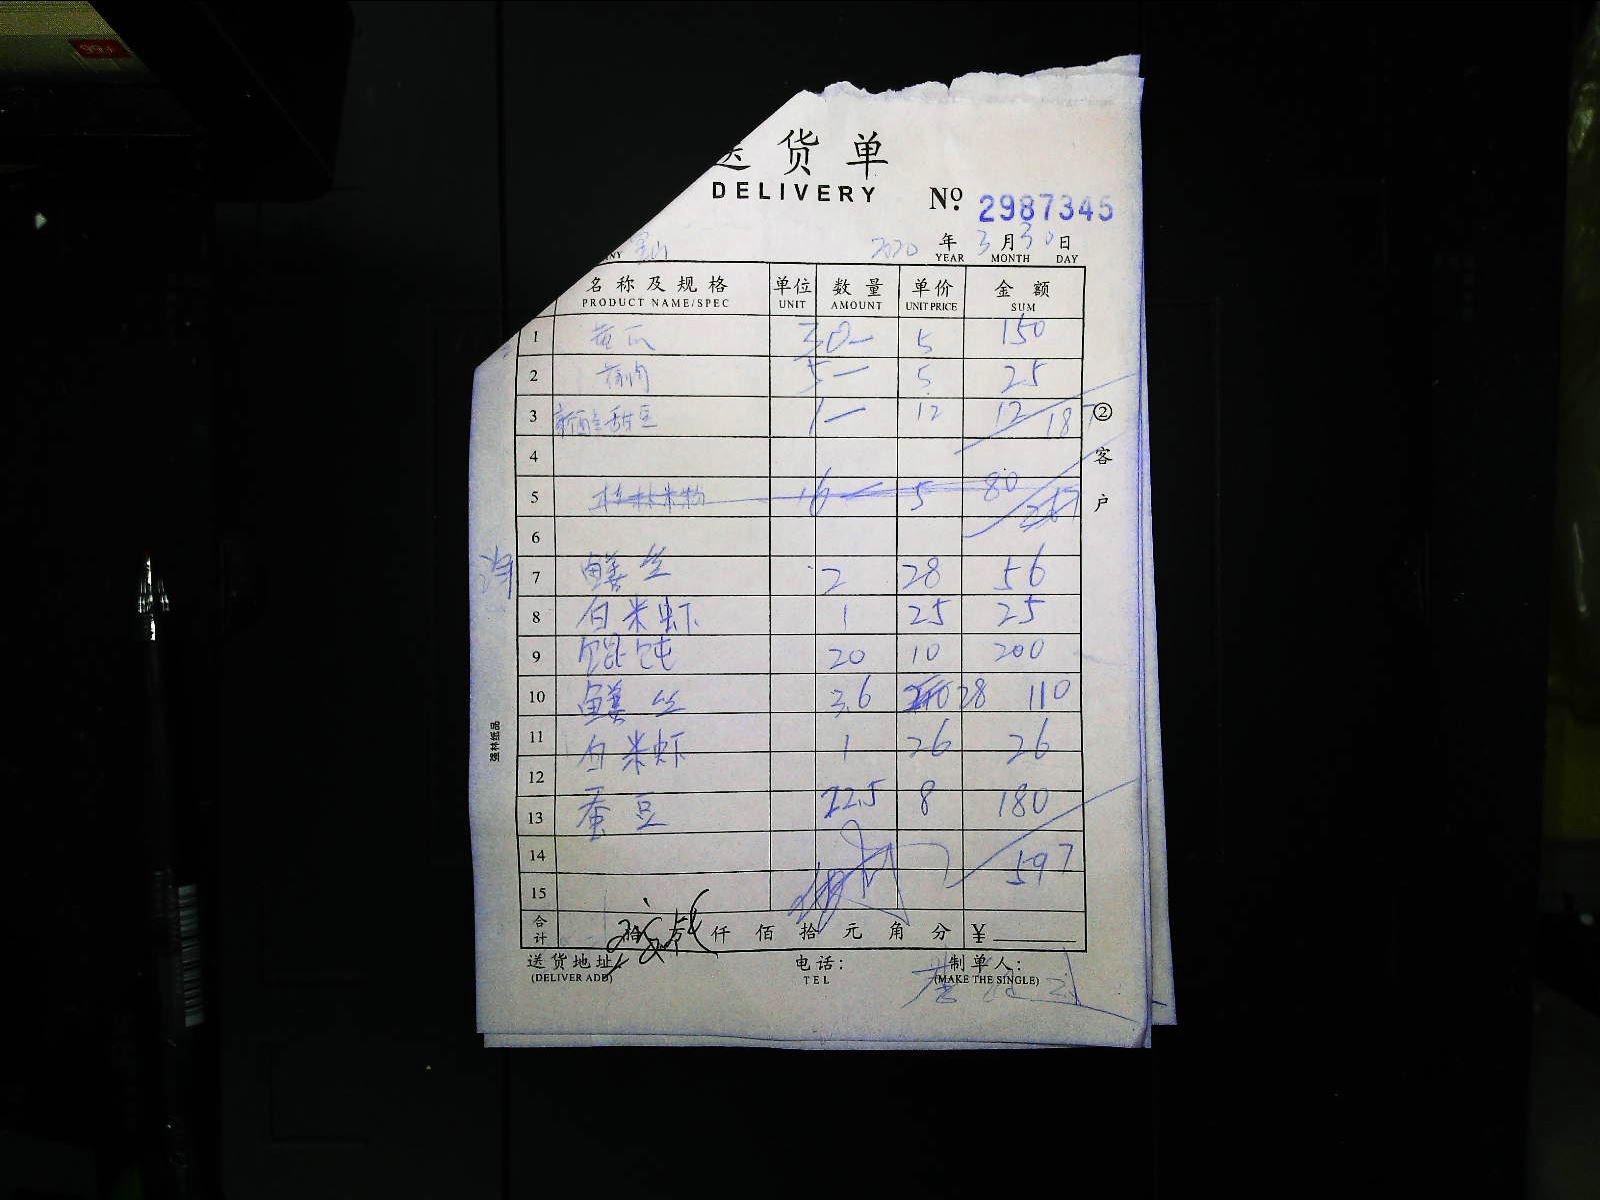 99+
送货单
DELIVERY
№ 2987345
2020 年 3 月 30 日
YEAR MONTH DAY
名称及规格 单位 数量 单价 金额
PRODUCT NAME/SPEC UNIT AMOUNT UNIT PRICE SUM
1 黄瓜 30- 5 150
2 5- 5 25
3 1- 12 12 187
4
5 桂林米粉 16 5 80 267
6
7 鳝丝 2 28 56
8 白米虾 1 25 25
9 馄饨 20 10 200
10 鳝丝 3.6 28 110
11 白米虾 1 26 26
12
13 蚕豆 22.5 8 180
14 597
15
合计 拾 万 仟 佰 拾 元 角 分 ¥
送货地址: 电话: 制单人:
(DELIVER ADD) TEL (MAKE THE SINGLE)
②客户
强林纸品